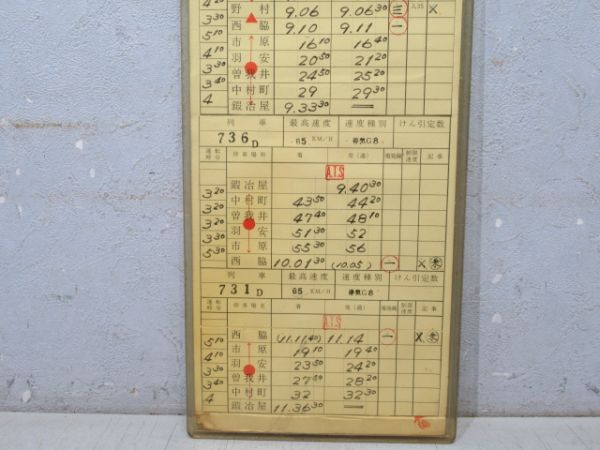 野村 9.06 9.06³⁰ 三 入15 X
4²⁰
西脇 9.10 9.11 一
3³⁰
市原 16¹⁰ 16⁴⁰
5¹⁰
羽安 20⁵⁰ 21²⁰
4¹⁰
曽我井 24⁵⁰ 25²⁰
3³⁰
中村町 29 29³⁰
3⁴⁰
鍛冶屋 9.33³⁰ —
4
列車 最高速度 速度種別 けん引定数
736D 65 KM/H 停気G8
運転時分 停車場名 着 発(通) 着発線 制限速度 記事
A.T.S
鍛冶屋 9.40³⁰
3²⁰
中村町 43⁵⁰ 44²⁰
3²⁰
曽我井 47⁴⁰ 48¹⁰
3²⁰
羽安 51³⁰ 52
3³⁰
市原 55³⁰ 56
5³⁰
西脇 10.01³⁰ (10.05) 一 X
列車 最高速度 速度種別 けん引定数
731D 65 KM/H 停気G8
運転時分 停車場名 着 発(通) 着発線 制限速度 記事
A.T.S
西脇 (11.11⁴⁰) 11.14 一 X
5¹⁰
市原 19¹⁰ 19⁴⁰
4¹⁰
羽安 23⁵⁰ 24²⁰
3³⁰
曽我井 27⁵⁰ 28²⁰
3⁴⁰
中村町 32 32³⁰
4
鍛冶屋 11.36³⁰ —